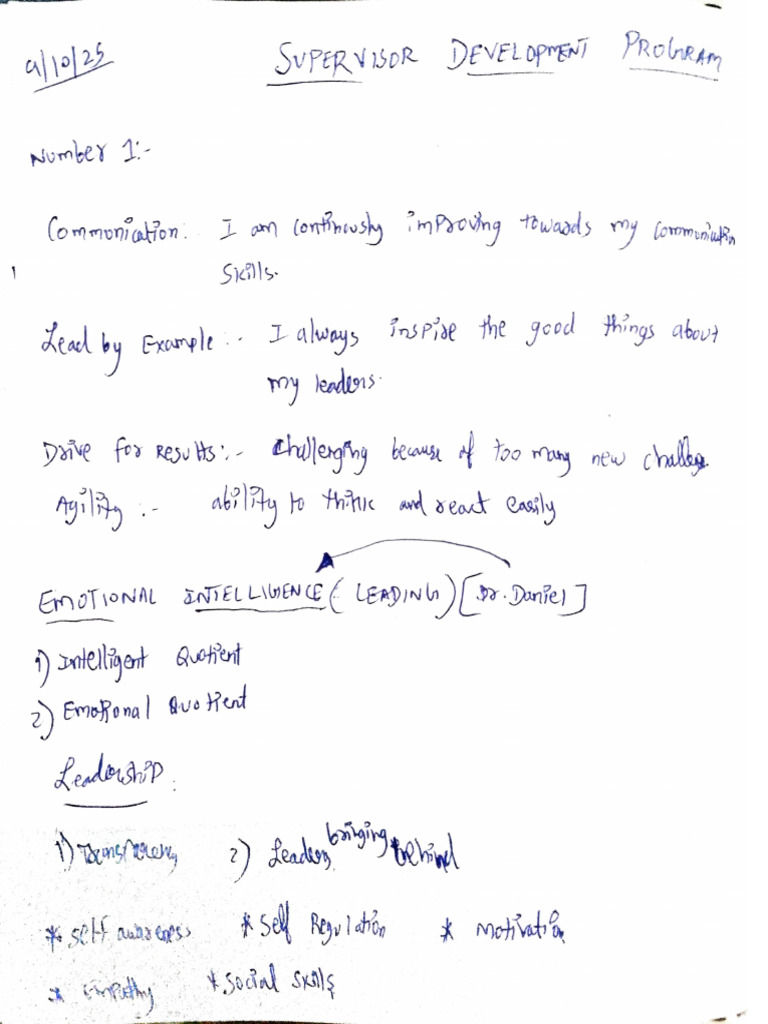 9/10/25 SUPERVISOR DEVELOPMENT PROGRAM
Number 1:-
Communication: I am continously improving towards my communication
skills.
Lead by Example:- I always inspire the good things about
my leaders.
Drive for Results:- Challenging because of too many new challenges
Agility:- ability to think and react easily
EMOTIONAL INTELLIGENCE (LEADING) [Dr. Daniel]
1) Intelligent Quotient
2) Emotional Quotient
Leadership:
1) Transparency 2) Leaders bringing behind
* Self awareness * Self Regulation * Motivation
* Empathy * Social skills